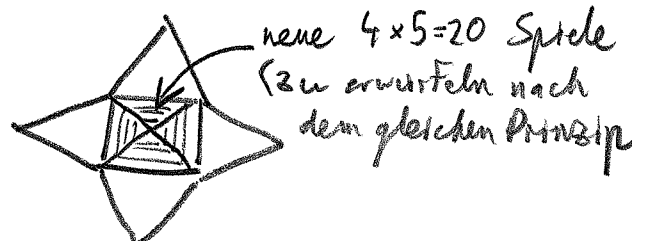 neue 4×5=20 Spiele
(zu erwürfeln nach
dem gleichen Prinzip